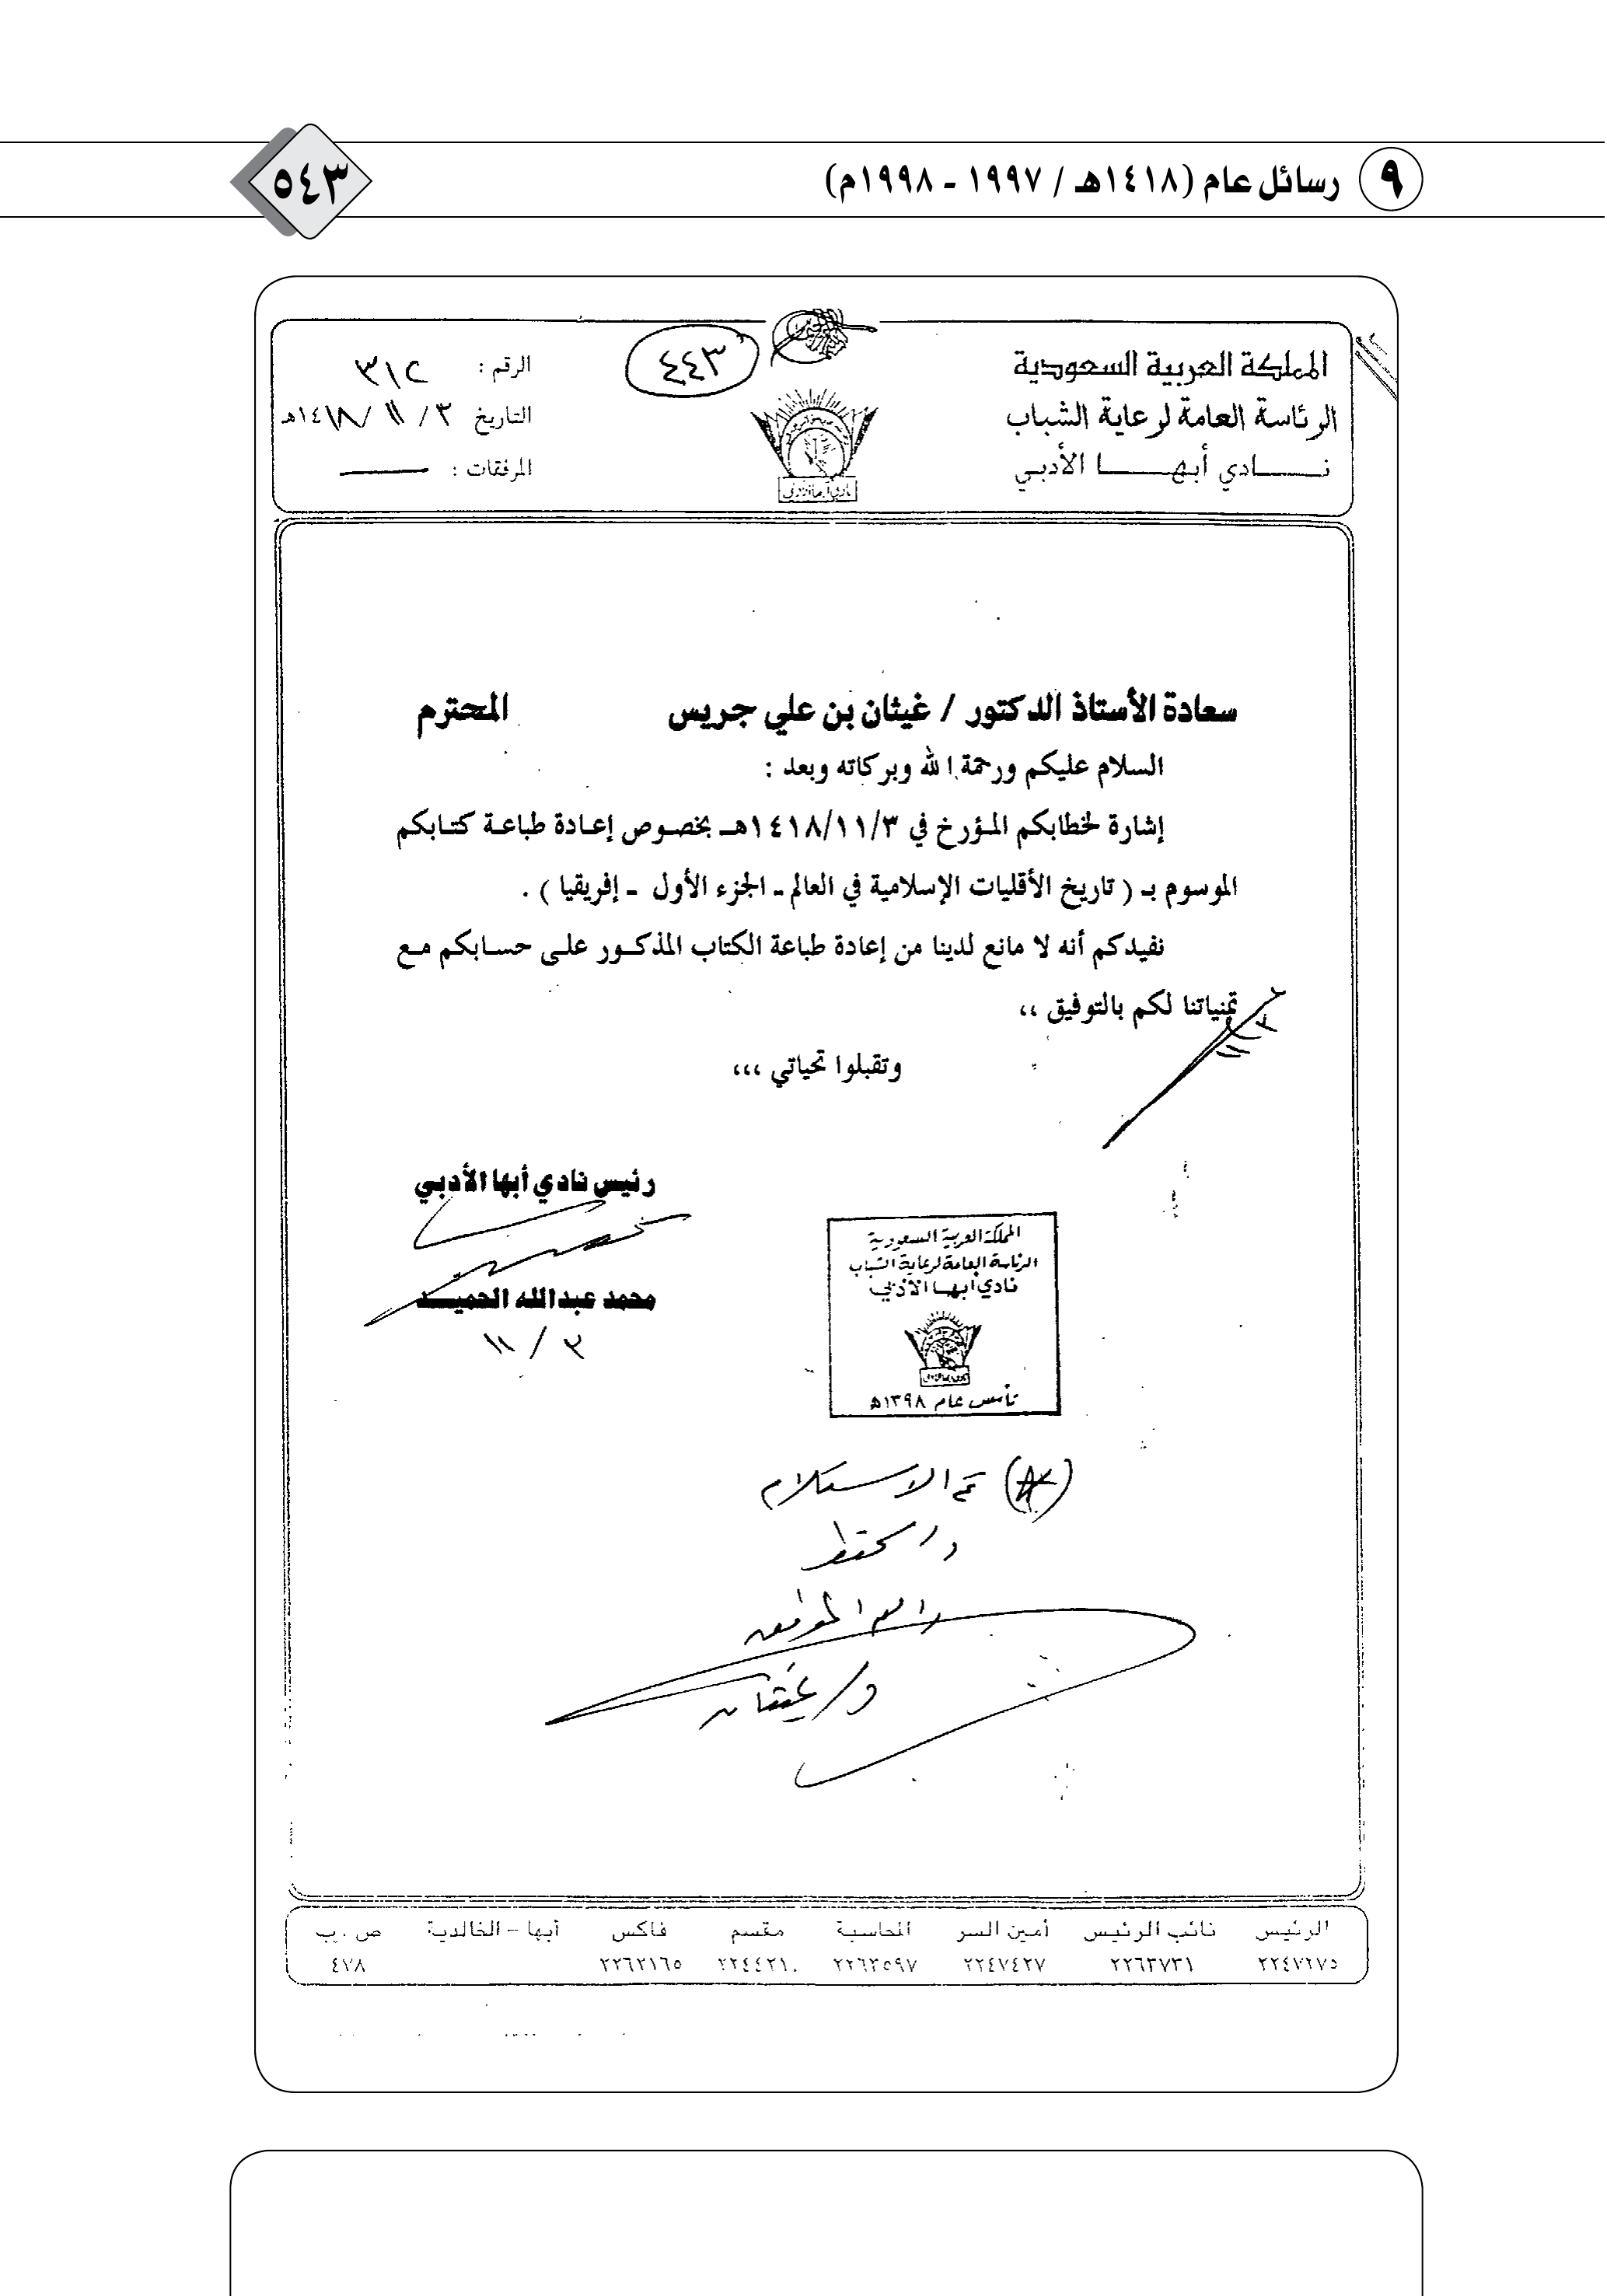 ٩ رسائل عام (١٤١٨هـ / ١٩٩٧ - ١٩٩٨م)
٥٤٣
المملكة العربية السعودية
الرئاسة العامة لرعاية الشباب
نـــادي أبهــــا الأدبي
٤٤٣
نادي أبها الأدبي
الرقم : ٣١٢
التاريخ ٣ / ١١ / ١٤١٨هـ
المرفقات :
سعادة الأستاذ الدكتور / غيثان بن علي جريس المحترم
السلام عليكم ورحمة الله وبركاته وبعد :
إشارة لخطابكم المـؤرخ في ١٤١٨/١١/٣هــ بخصـوص إعـادة طباعـة كتـابكم
الموسوم بـ ( تاريخ الأقليات الإسلامية في العالم ـ الجزء الأول ـ إفريقيا ) .
نفيدكم أنه لا مانع لدينا من إعادة طباعة الكتاب المذكـور علـى حسـابكم مـع
تمنياتنا لكم بالتوفيق ،،
وتقبلوا تحياتي ،،،
رئيس نادي أبها الأدبي
محمد عبدالله الحميـــد
٣ / ١١
المملكة العربية السعودية
الرئاسة العامة لرعاية الشباب
نادي أبهـا الأدبي
تأسس عام ١٣٩٨هـ
تم الاستلام
والحفظ
والله الموفق
د/ غيثان
الرئيس نائب الرئيس أمين السر المحاسبة مقسم فاكس أبها - الخالدية ص . ب
٢٢٤٧٢٧٥ ٢٢٦٣٧٣١ ٢٢٤٧٤٢٧ ٢٢٦٣٥٩٧ ٢٢٤٤٢١٠ ٢٢٦٢١٦٥ ٤٧٨